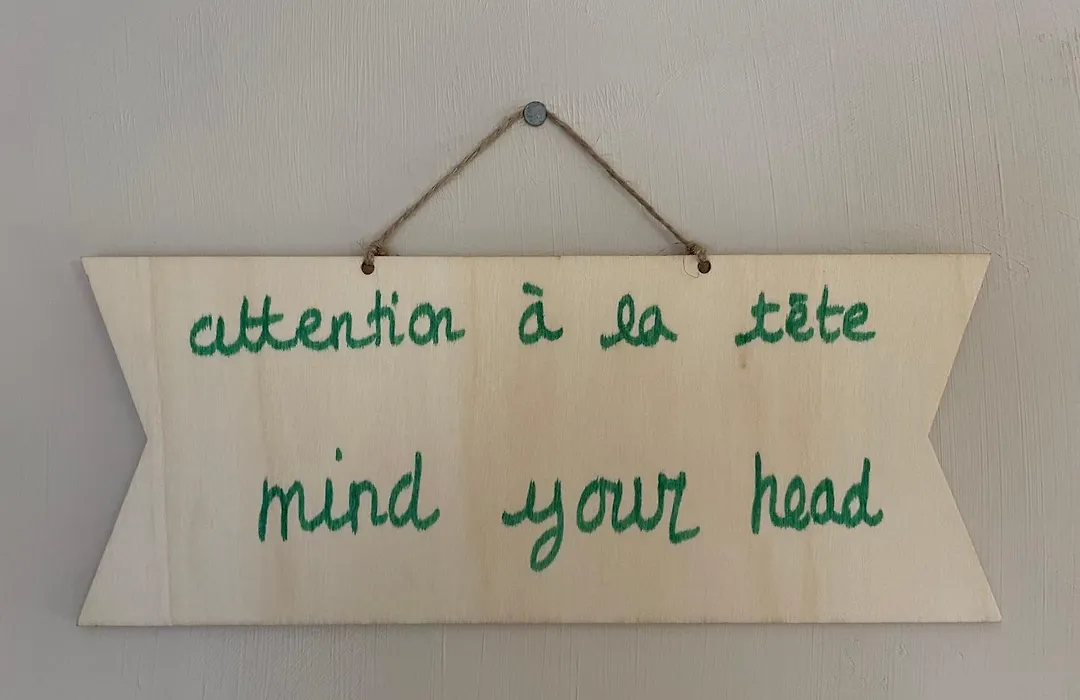 attention à la tête
mind your head